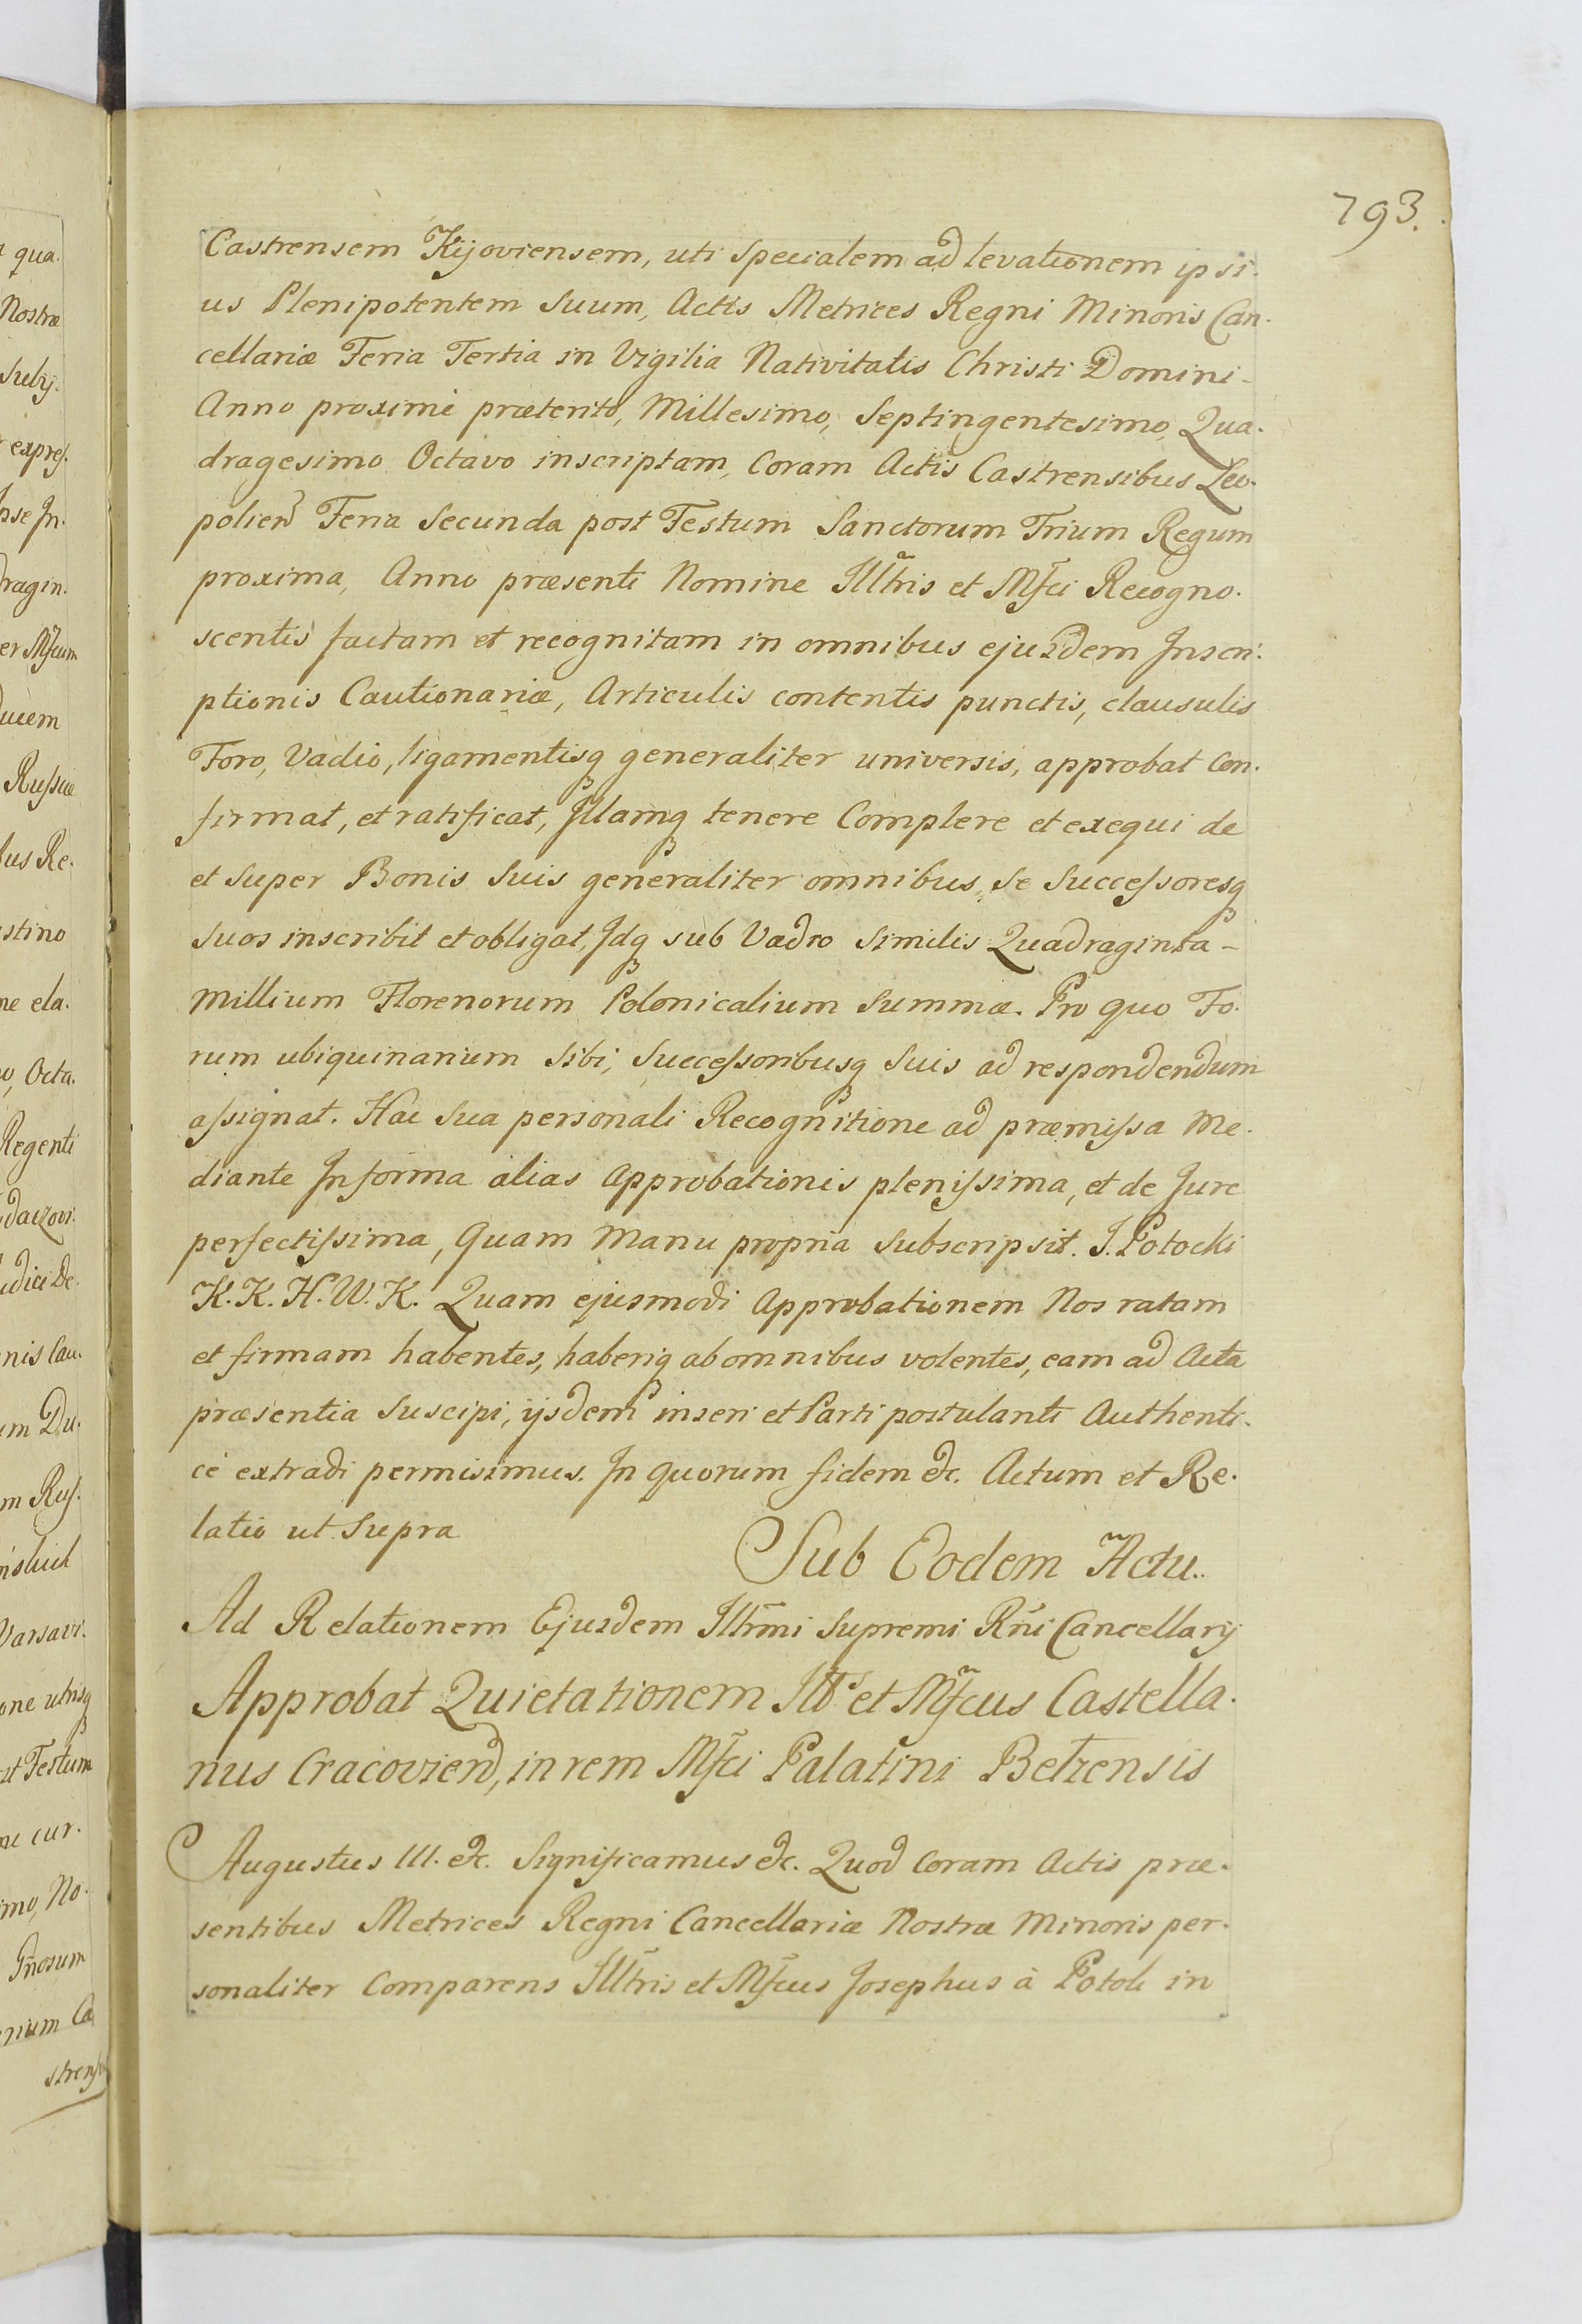 793.
Castrensem Kijoviensem, uti Specialem ad levationem ipsi-
us Plenipotentem Suum, Actis Metrices Regni Minoris Can-
cellariæ Feria Tertia in Vigilia Nativitatis Christi Domini-
Anno proximè præterito, Millesimo, Septingentesimo, Qua-
dragesimo Octavo inscriptam, Coram Actis Castrensibus Leo-
polien Feria Secunda post Festum Sanctorum Trium Regum
proxima, Anno præsenti Nomine Illtris et Mfci Recogno-
scentis factam et recognitam in omnibus ejusdem Inscri-
ptionis Cautionariæ, Articulis contentis punctis, clausulis
Foro, Vadio, ligamentisq generaliter universis, approbat Con-
firmat, et ratificat, Illamq tenere Complere et exequi de
et Super Bonis Suis generaliter omnibus, Se Successoresq
Suos inscribit et obligat, Idq sub Vadio Similis Quadraginta-
Millium Florenorum Polonicalium Summæ. Pro quo Fo-
rum ubiquinarium Sibi, Successoribusq Suis ad respondendum
assignat. Hac Sua personali Recognitione ad præmissa Me-
diante Informa alias Approbationis plenissima, et de Jure
perfectissima, Quam Manu propria Subscripsit. J. Potocki
K. K. H. W. K. Quam ejusmodi Approbationem Nos ratam
et firmam habentes, haberiq ab omnibus volentes, eam ad Acta
præsentia Suscipi, ijsdem inseri et Parti postulanti Authenti-
cè extradi permisimus. In quorum fidem &c. Actum et Re-
latio ut Supra
Sub Eodem Actu..
Ad Relationem Ejusdem Illrmi Supremi Rni Cancellarij
Approbat Quietationem Illts et Mfcus Castella-
nus Cracovien, in rem Mfci Palatini Belzensis
Augustus III. &c. Significamus &c. Quod Coram Actis præ-
sentibus Metrices Regni Cancellariæ Nostræ Minoris per-
sonaliter Comparens Illtris et Mfcus Josephus à Potok in